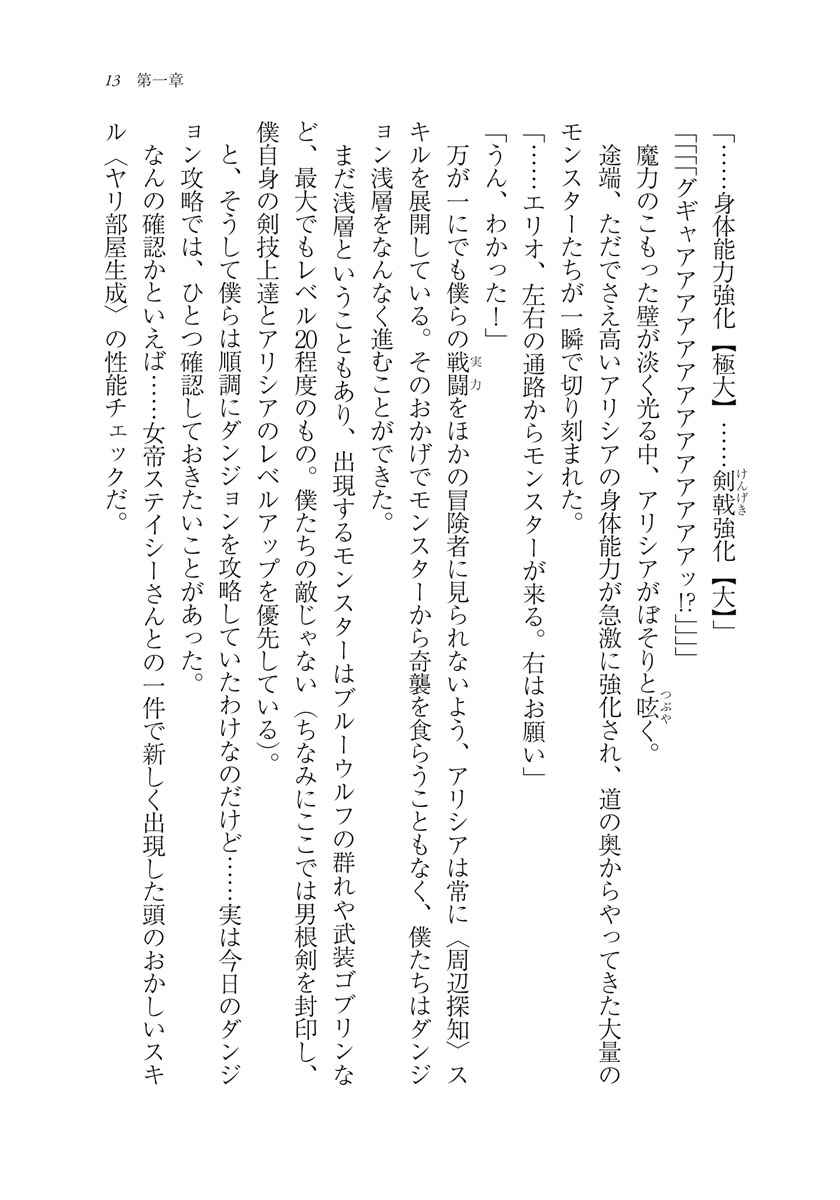 13 第一章
「……身体能力強化【極大】……剣戟強化【大】」
けんげき
「「「「グギャアアアアアアアアアアアアアッ!?」」」」
魔力のこもった壁が淡く光る中、アリシアがぼそりと呟く。
つぶや
途端、ただでさえ高いアリシアの身体能力が急激に強化され、道の奥からやってきた大量の
モンスターたちが一瞬で切り刻まれた。
「……エリオ、左右の通路からモンスターが来る。右はお願い」
「うん、わかった！」
万が一にでも僕らの戦闘をほかの冒険者に見られないよう、アリシアは常に〈周辺探知〉ス
実力
キルを展開している。そのおかげでモンスターから奇襲を食らうこともなく、僕たちはダンジ
ョン浅層をなんなく進むことができた。
まだ浅層ということもあり、出現するモンスターはブルーウルフの群れや武装ゴブリンな
ど、最大でもレベル20程度のもの。僕たちの敵じゃない（ちなみにここでは男根剣を封印し、
僕自身の剣技上達とアリシアのレベルアップを優先している）。
と、そうして僕らは順調にダンジョンを攻略していたわけなのだけど……実は今日のダンジ
ョン攻略では、ひとつ確認しておきたいことがあった。
なんの確認かといえば……女帝ステイシーさんとの一件で新しく出現した頭のおかしいスキ
ル〈ヤリ部屋生成〉の性能チェックだ。